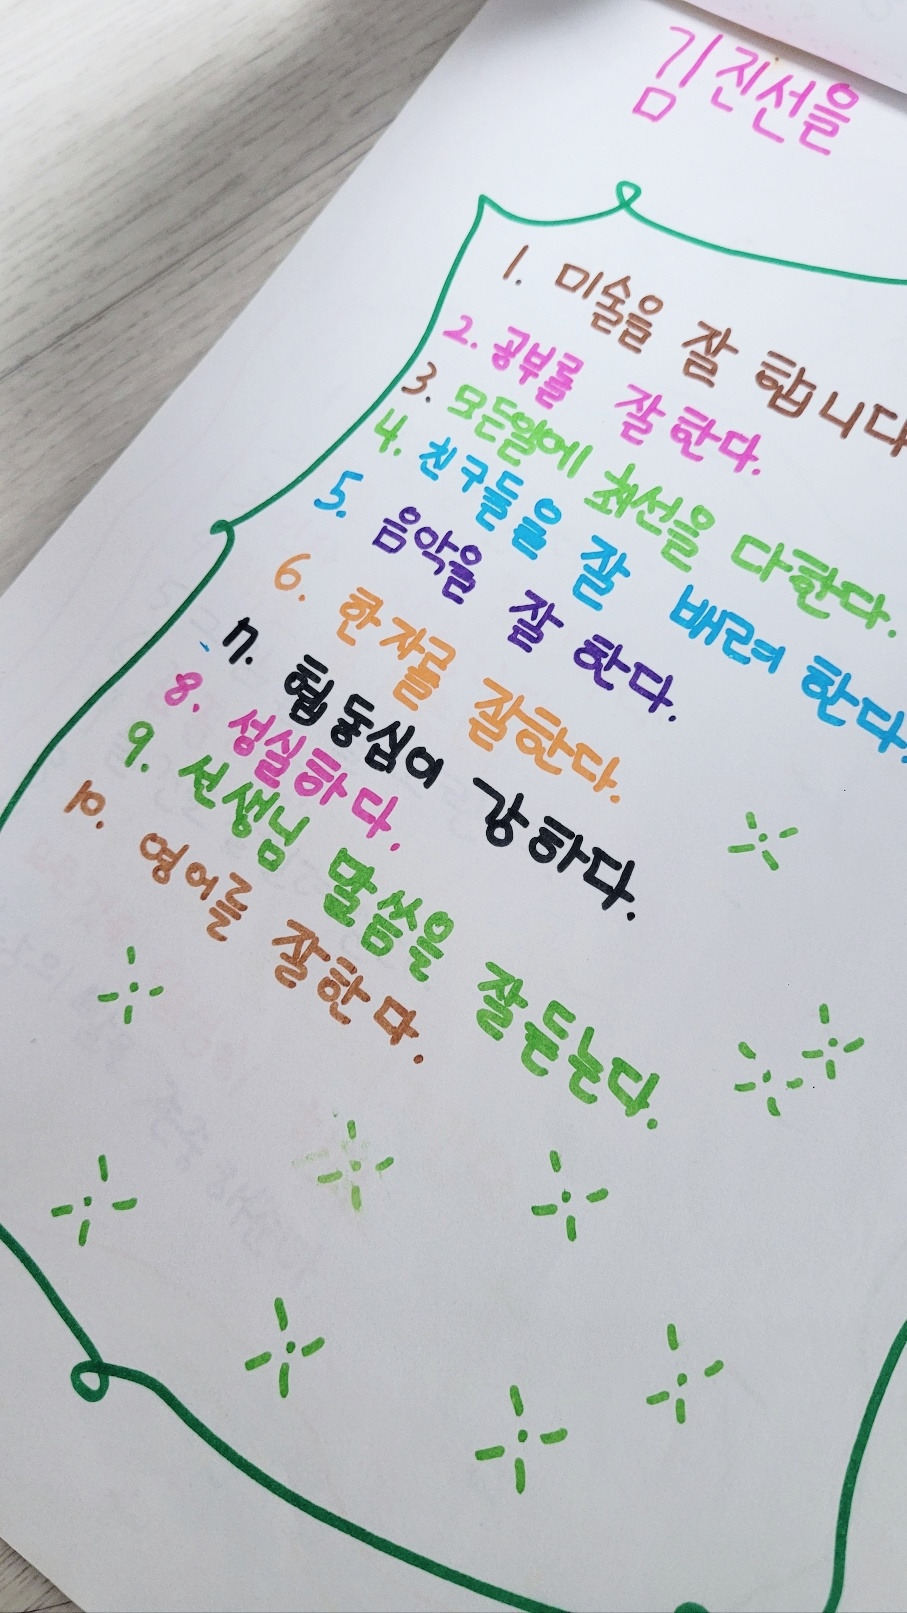 김진선을
1. 미술을 잘 합니다
2. 공부를 잘한다.
3. 모든일에 최선을 다한다.
4. 친구들을 잘 배려 한다.
5. 음악을 잘 한다.
6. 한자를 잘한다.
7. 협동심이 강하다.
8. 성실하다.
9. 선생님 말씀을 잘듣는다.
10. 영어를 잘한다.